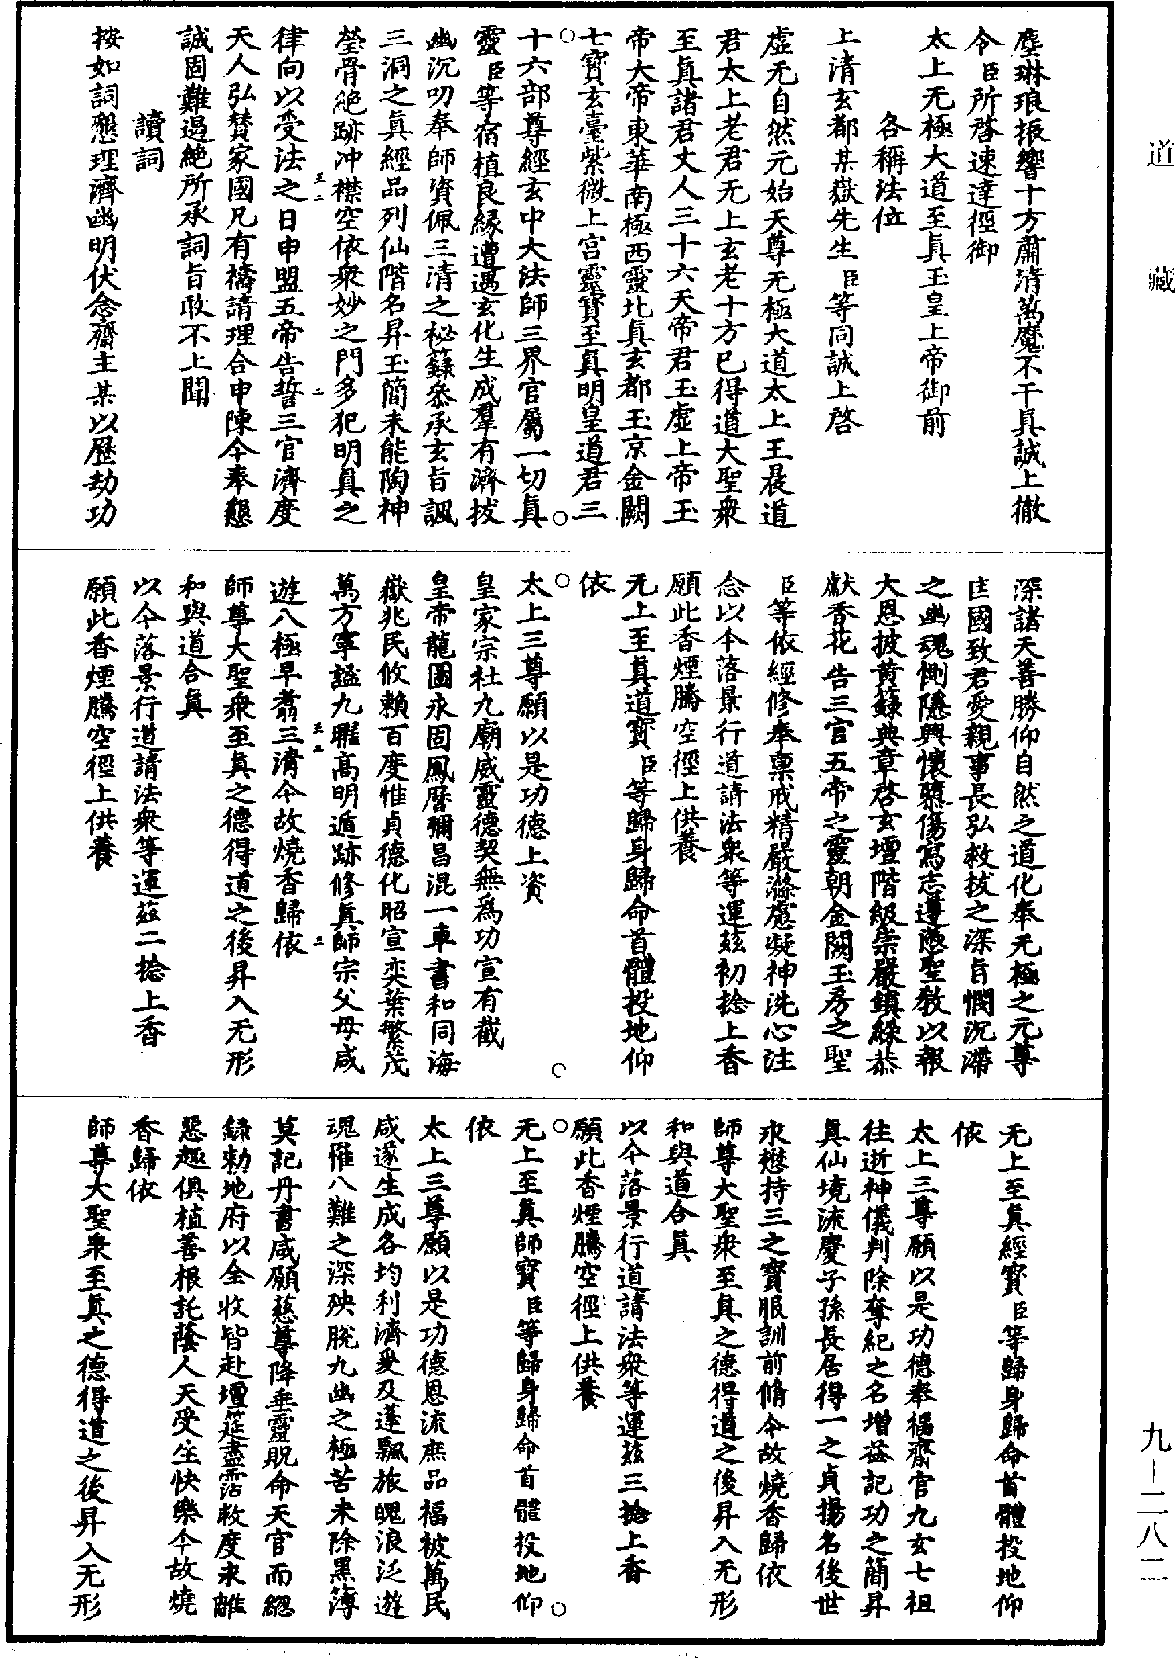 塵琳琅振響十方肅清萬魔不干真誠上徹
令臣所啓速達徑御
太上无極大道至真玉皇上帝御前
各稱法位
上清玄都某嶽先生臣等同誠上啓
虛无自然元始天尊无極大道太上玉晨道
君太上老君无上玄老十方已得道大聖衆
至真諸君丈人三十六天帝君玉虛上帝玉
帝大帝東華南極西靈北真玄都玉京金闕
七寶玄臺紫微上宮靈寶至真明皇道君三
十六部尊經玄中大法師三界官屬一切真
靈臣等宿植良緣遭遇玄化生成羣有濟拔
幽沉叨奉師資佩三清之秘籙叅承玄旨諷
三洞之真經品列仙階名昇玉簡未能陶神
瑩骨絶跡冲襟空依衆妙之門多犯明真之
律向以受法之日申盟五帝告誓三官濟度
天人弘贊家國凡有禱請理合申陳今奉懇
誠固難遏絶所承詞旨敢不上聞
讀詞
按如詞懇理濟幽明伏念齋主某以歷劫功
深諸天善勝仰自然之道化奉无極之元尊
匡國致君愛親事長弘救拔之深旨憫沉滯
之幽魂惻隱興懷慕傷寫志遵慈聖教以報
大恩披黄籙典章啓玄壇階級崇嚴鎮綵恭
獻香花告三官五帝之靈朝金闕玉房之聖
臣等依經修奉稟戒精嚴滌慮凝神洗心注
念以今落景行道請法衆等運兹初捻上香
願此香煙騰空徑上供養
无上至真道寶臣等歸身歸命首體投地仰
依
太上三尊願以是功德上資
皇家宗社九廟威靈德契無爲功宣有截
皇帝龍圖永固鳳曆彌昌混一車書和同海
嶽兆民攸賴百度惟貞德化昭宣奕葉繁茂
萬方寧謐九曜高明遁跡修真師宗父母咸
遊八極早蓊三清今故燒香歸依
師尊大聖衆至真之德得道之後昇入无形
和與道合真
以今落景行道請法衆等運兹二捻上香
願此香煙騰空徑上供養
无上至真經寶臣等歸身歸命首體投地仰
依
太上三尊願以是功德奉福齋官九玄七祖
往逝神儀判除奪紀之名增益記功之簡昇
真仙境流慶子孫長居得一之貞揚名後世
永懋持三之寶服訓前脩今故燒香歸依
師尊大聖衆至真之德得道之後昇入无形
和與道合真
以今落景行道請法衆等運兹三捻上香
願此香煙騰空徑上供養
无上至真師寶臣等歸身歸命首體投地仰
依
太上三尊願以是功德恩流庶品福被萬民
咸遂生成各均利濟爰及蓬飄旅魄浪泛遊
魂罹八難之深殃脫九幽之極苦未除黑簿
莫記丹書咸願慈尊降垂靈貺命天官而緦
錄勑地府以全收皆赴壇筵盡霑救度永離
惡趣俱植善根託蔭人天受生快樂今故燒
香歸依
師尊大聖衆至真之德得道之後昇入无形
道藏
九—二八二